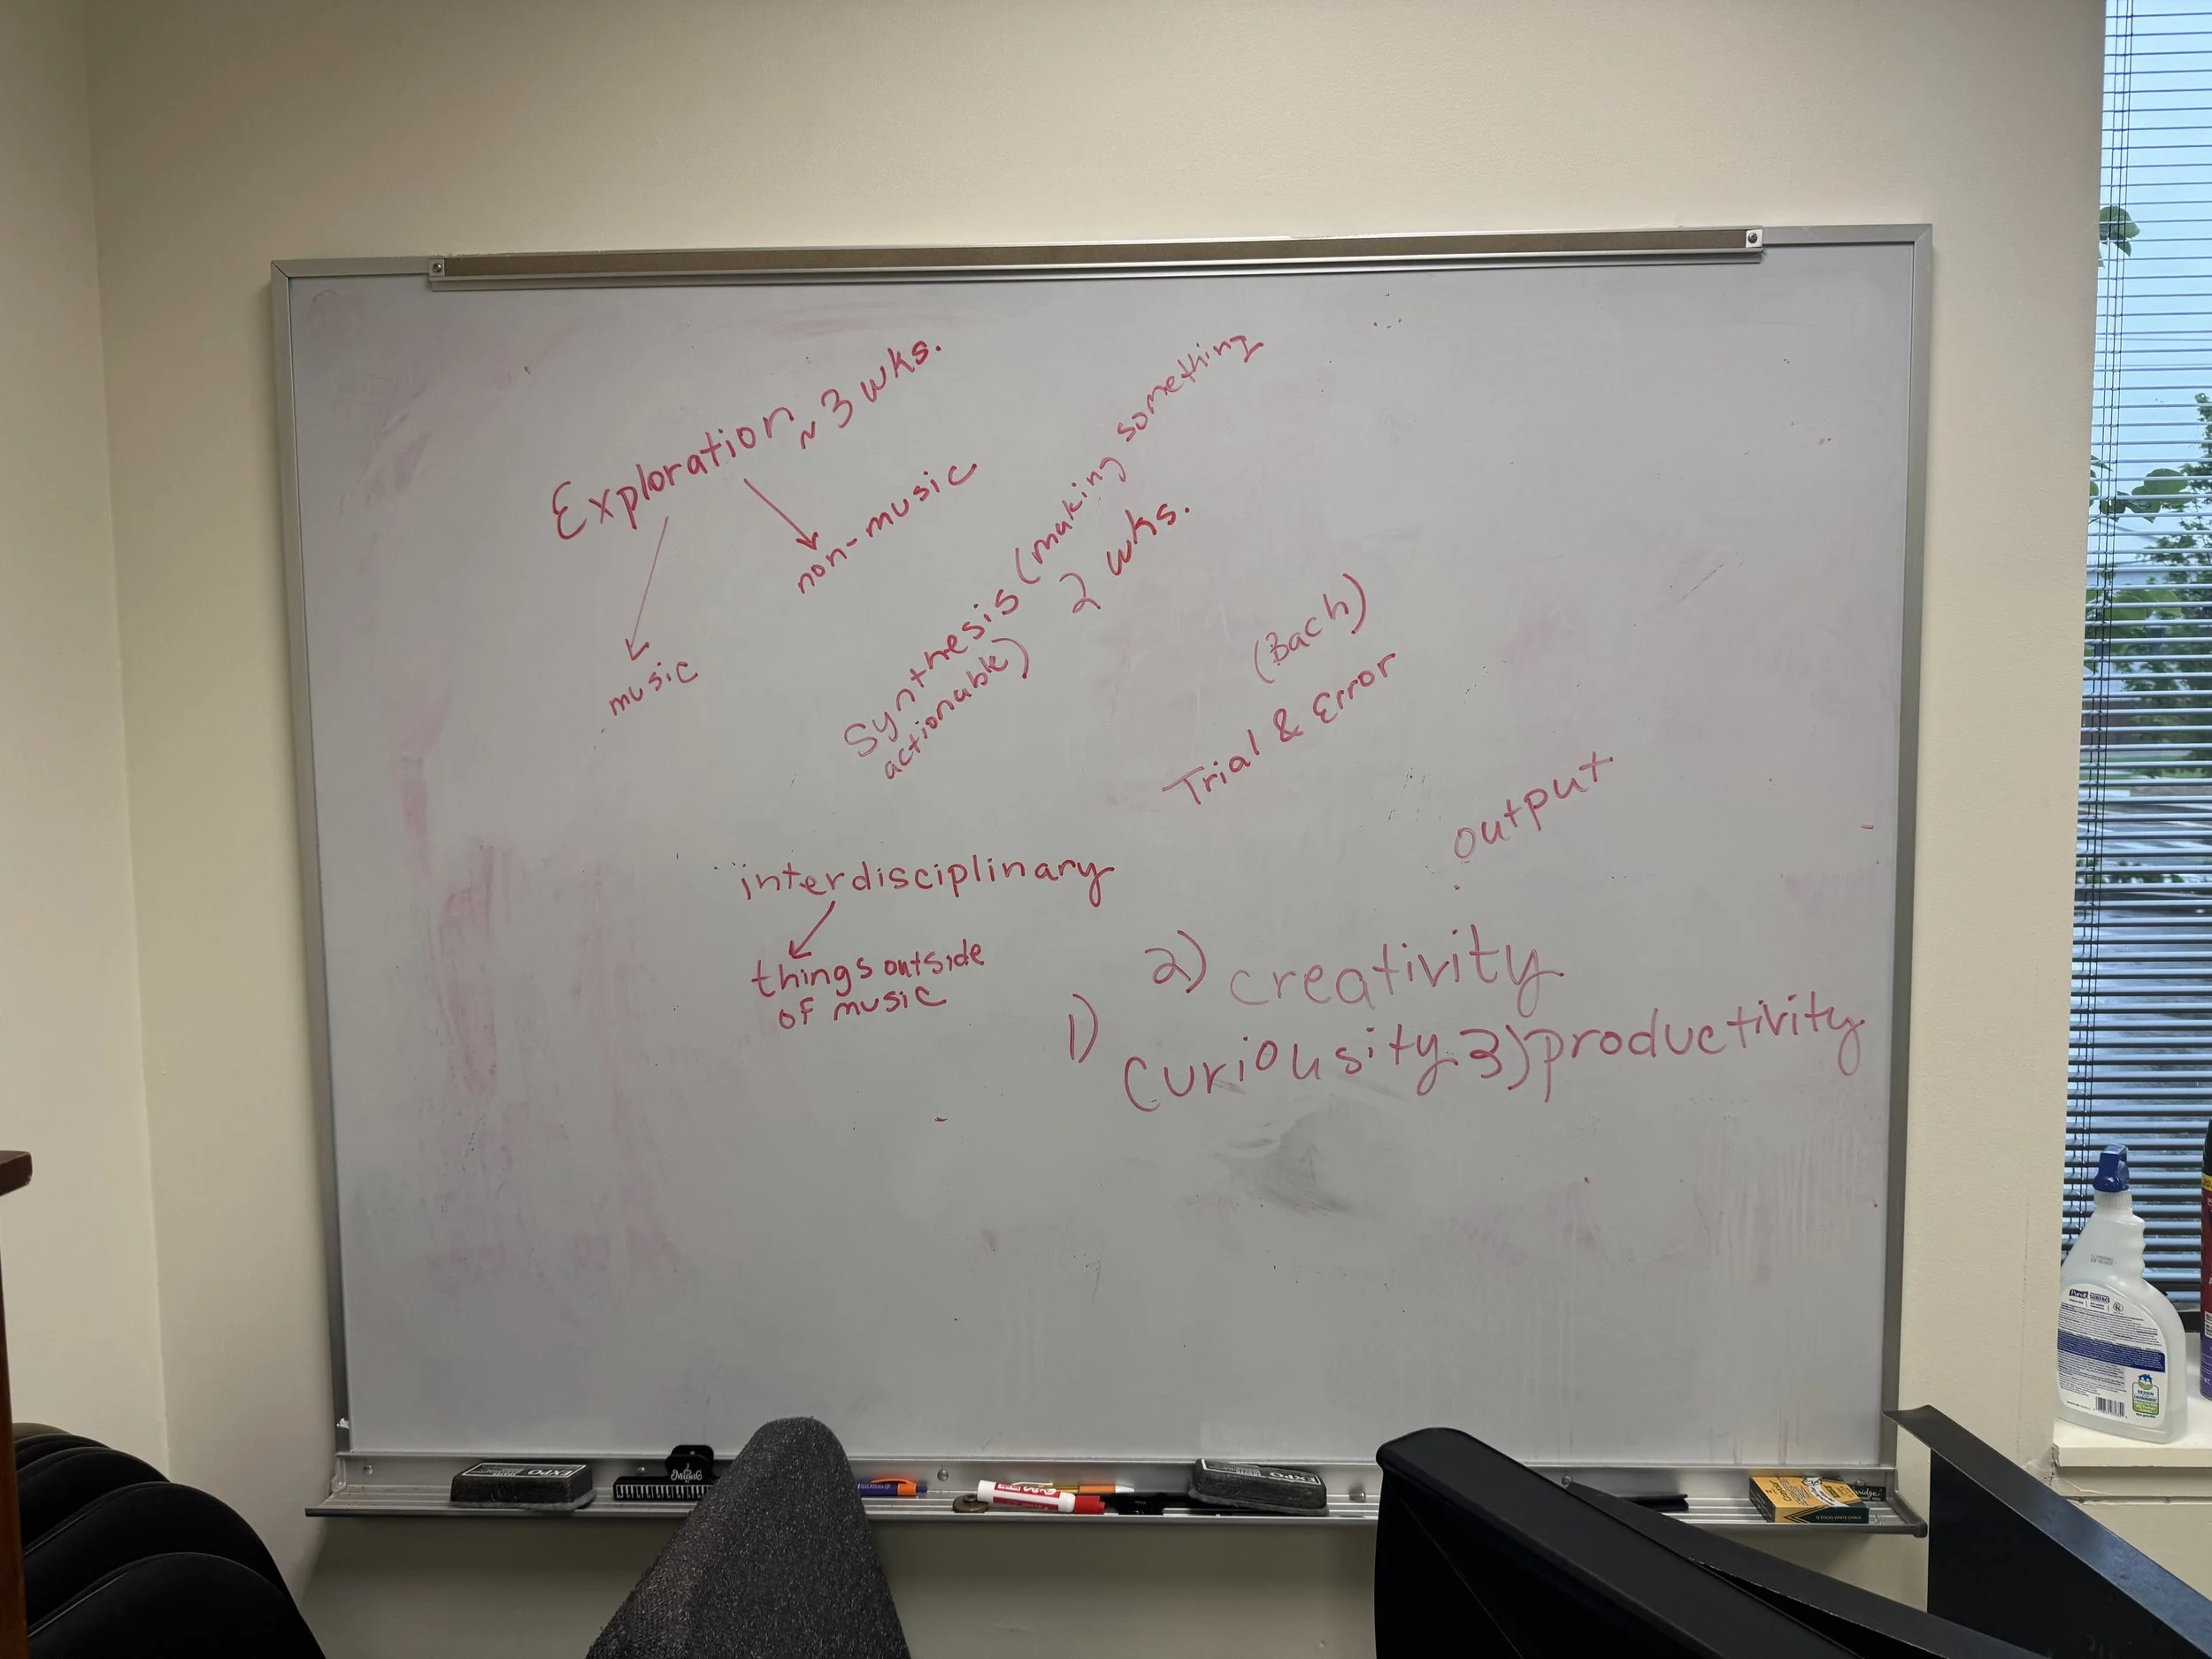 Exploration ~ 3 wks.
music
non-music
Synthesis (making something
actionable)
2 wks.
(Bach)
Trial & Error
output
interdisciplinary
things outside
of music
2) creativity
1) Curiousity 3) productivity
EXPO
EXPO